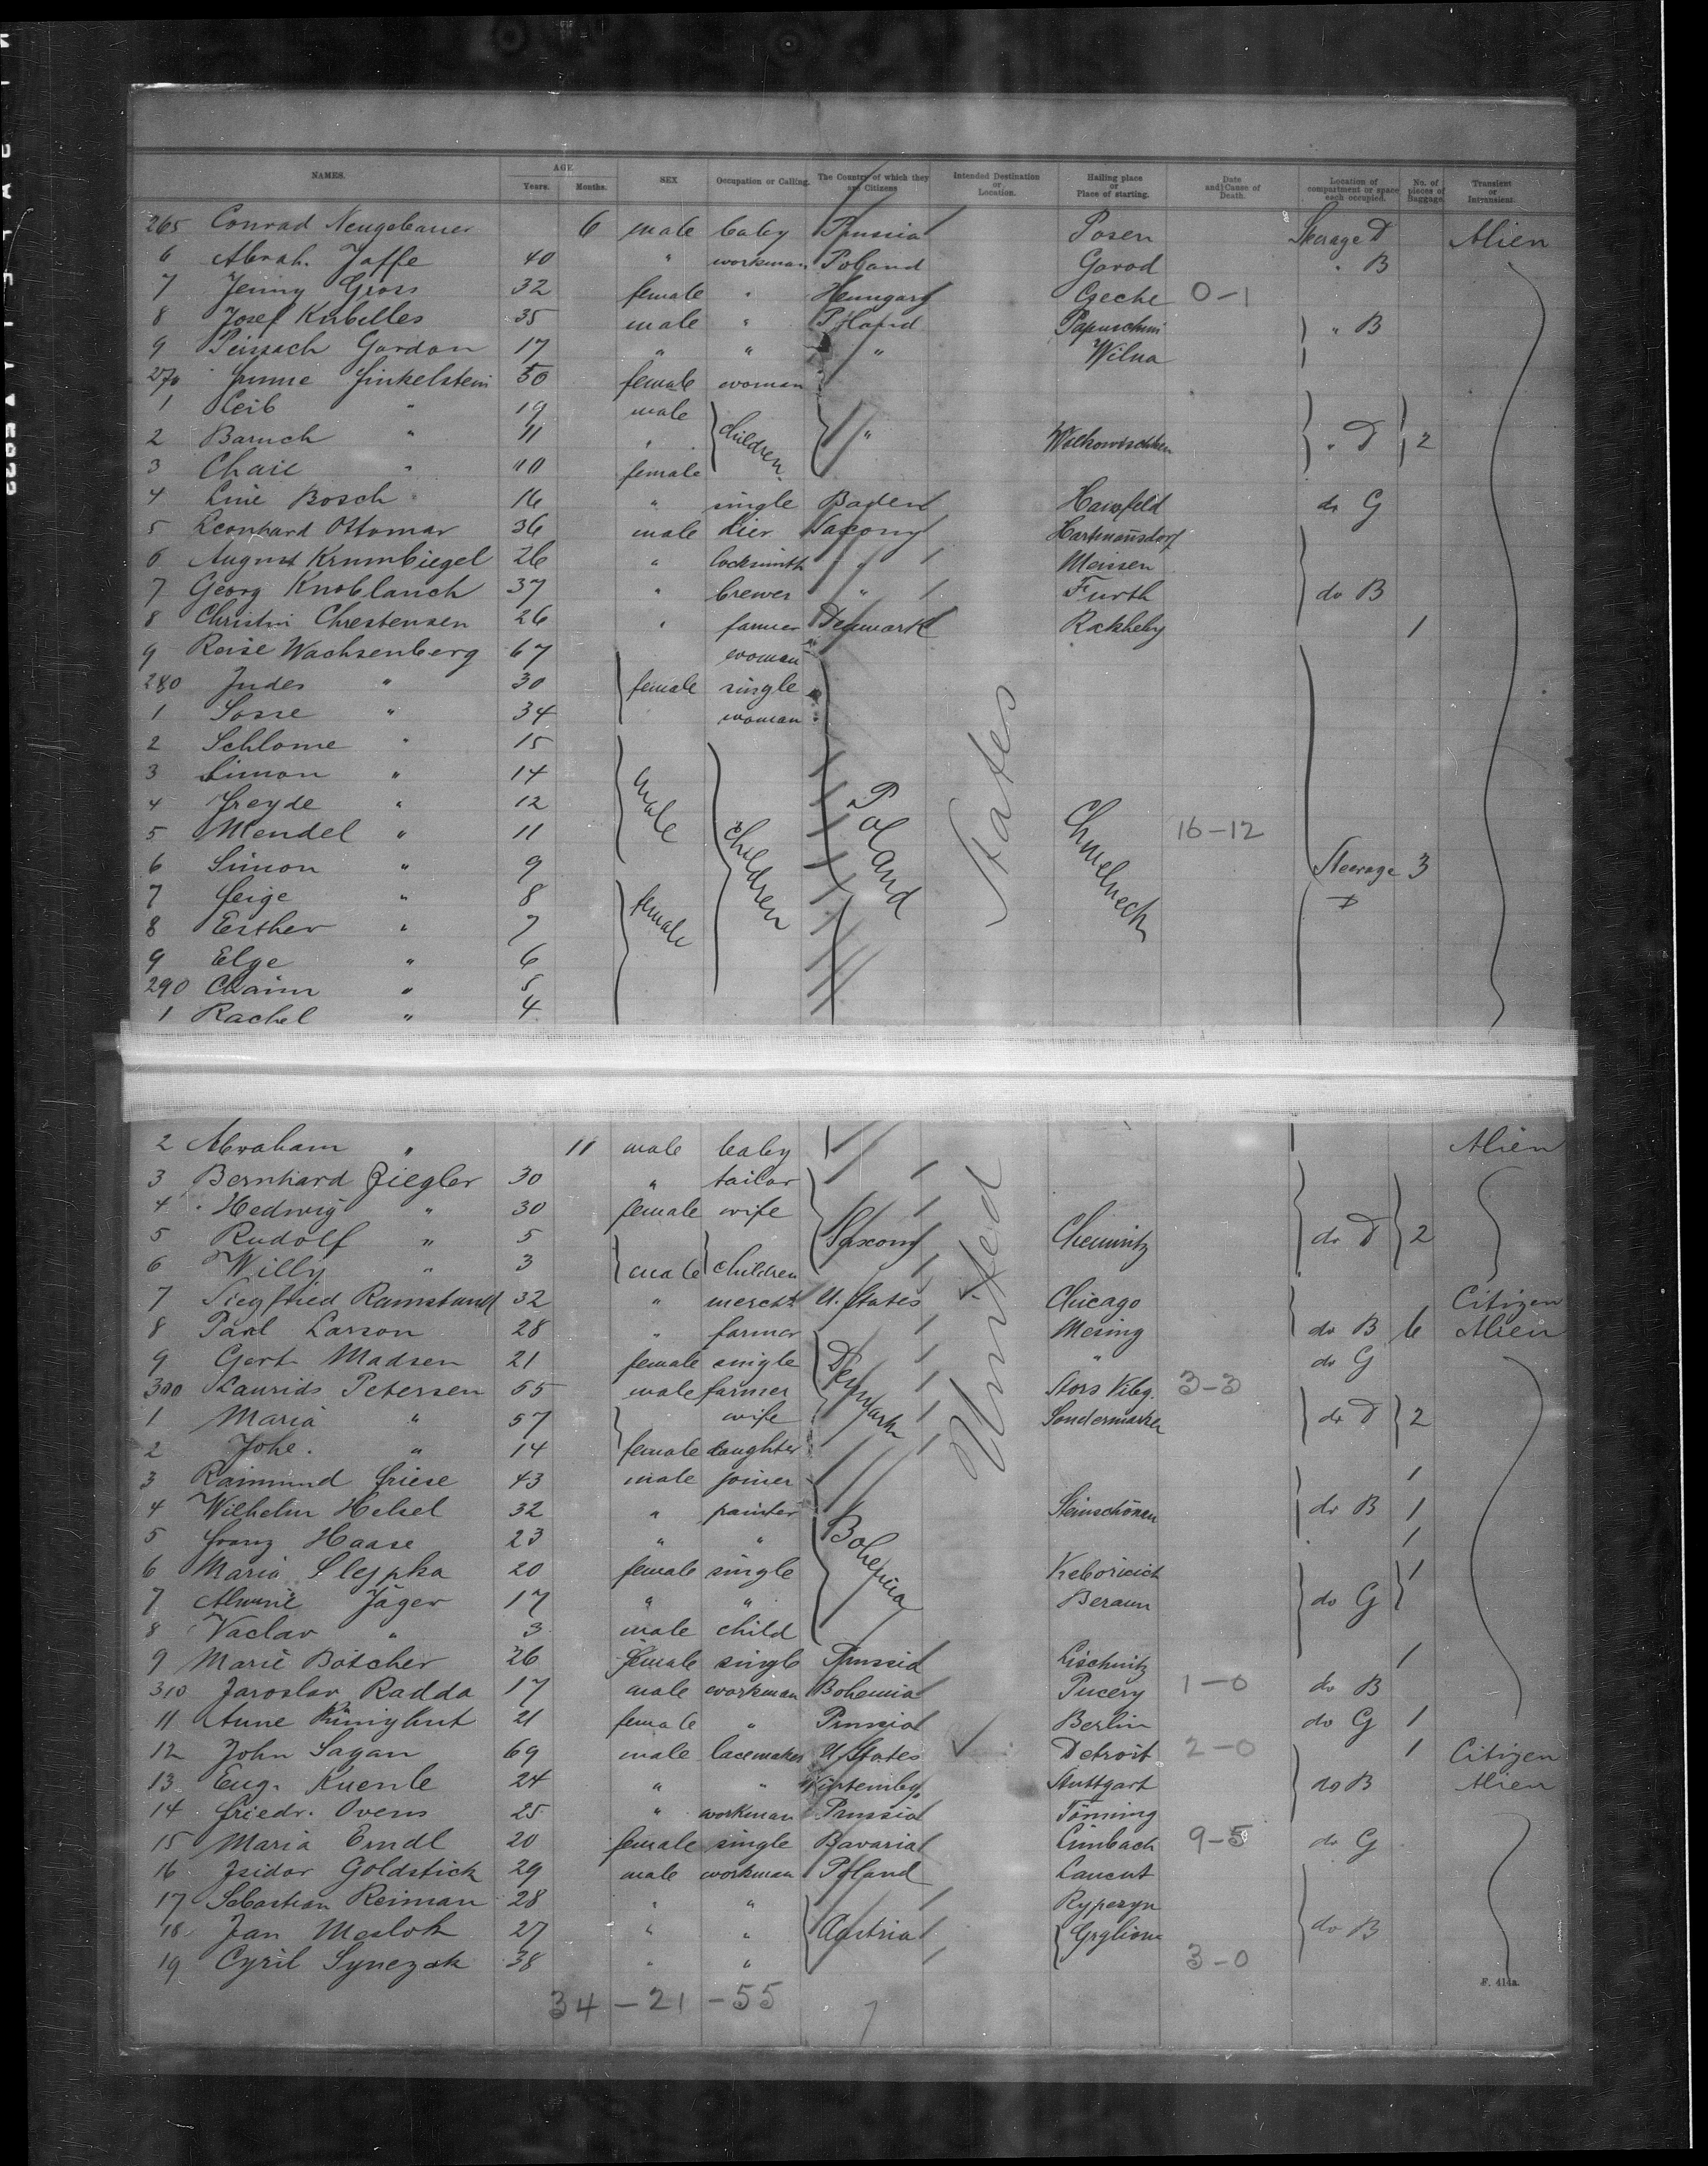 NAMES. AGE. Years. Months. SEX Occupation or Calling. The Country of which they are Citizens Intended Destination or Location. Hailing place or Place of starting. Date and Cause of Death. Location of compartment or space each occupied. No. of pieces of Baggage Transient or Intransient.
265 Conrad Neugebauer 6 male baby Prussia Posen Steerage D Alien
6 Abrah. Jaffe 40 " workman Poland Garod " B
7 Jenny Gross 32 female " Hungary Czeche 0-1
8 Josef Kubilles 35 male " Poland Papuschni " B
9 Peissach Gordon 17 " " " Wilna
270 Finkelstein 50 female woman
1 Leib " 19 male
2 Baruch " 11 " children " Wolkowischken " D 2
3 Chaie " 10 female
4 Line Bosch 16 " single Baden Hausfeld do G
5 Leonhard Ottomar 36 male dier Saxony Hartmannsdorf
6 August Krumbiegel 26 " locksmith " Meissen
7 Georg Knoblauch 37 " brewer " Furth do B
8 Christin Chrestensen 26 " farmer Denmark Rakheby 1
9 Reise Wachsenberg 67 woman
280 Judes " 30 female single
1 Sosse " 34 woman
2 Schlome " 15
3 Simon " 14 male
4 Freyde " 12 Poland States
5 Mendel " 11 children Chmelneck 16-12
6 Simon " 9 Steerage 3
7 Feige " 8 female D
8 Esther " 7
9 Elge " 6
290 Chaim " 5
1 Rachel " 4
2 Abraham " 11 male baby Alien
3 Bernhard Ziegler 30 " tailor
4 Hedwig " 30 female wife United
5 Rudolf " 5 Saxony Chemnitz do D 2
6 Willy " 3 male children
7 Siegfried Ramstand 32 " mercht U. States Chicago Citizen
8 Paul Larson 28 " farmer Mesing do B 6 Alien
9 Gert. Madsen 21 female single Denmark " do G
300 Laurids Petersen 65 male farmer Stors Vibg. 3-3
1 Maria " 57 wife Sondermarken do D 2
2 Johe. " 14 female daughter
3 Raimund Friese 43 male joiner 1
4 Wilhelm Helsel 32 " painter Steinschönau do B 1
5 Franz Haase 23 " " Bohemia 1
6 Maria Slepka 20 female single 1
7 Alwine Jäger 17 " " Beraun do G
8 Vaclav " 3 male child
9 Marie Bötcher 26 female single Prussia Lischnitz 1
310 Jaroslav Radda 17 male workman Bohemia Pucery 1-0 do B
11 Anne Könighut 21 female " Prussia Berlin do G 1
12 John Sagan 69 male lacemaker U. States Detroit 2-0 1 Citizen
13 Eug. Kuenle 24 " " Würtembg. Stuttgart do B Alien
14 Friedr. Ovens 25 " workman Prussia Tönning
15 Maria Emdl 20 female single Bavaria Limbach 9-5 do G
16 Isidor Goldstick 29 male workman Poland Lancut
17 Sebastian Reiman 28 " " Rypezyn
18 Jan Meslok 27 " " Austria do B
19 Cyril Synezak 38 " " 3-0
F. 414a.
34 - 21 - 55